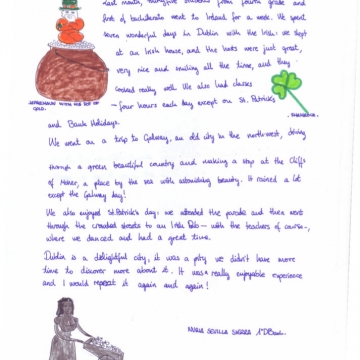 Last month, thirtyfive students from fourth grade and
first of bachillerato went to Ireland for a week. We spent
seven wonderful days in Dublin with the Irish: we slept
at an Irish house, and the hosts were just great,
very nice and smiling all the time, and they
cooked really well. We also had classes
- four hours each day except on St. Patrick's
and Bank Holidays.
LEPRECHAUN WITH HIS POT OF
GOLD.
SHAMROCK.
We went on a trip to Galway, an old city in the northwest, driving
through a green beautiful country and making a stop at the Cliffs
of Moher, a place by the sea with astonishing beauty. It rained a lot
except the Galway day!
We also enjoyed St.Patrick's day: we attended the parade and then went
through the crowded streets to an Irish Pub - with the teachers of course-,
where we danced and had a great time.
Dublin is a delightful city, it was a pity we didn't have more
time to discover more about it. It was a really enjoyable experience
and I would repeat it again and again!
MARIA SEVILLA SIERRA 1ºD Bach.